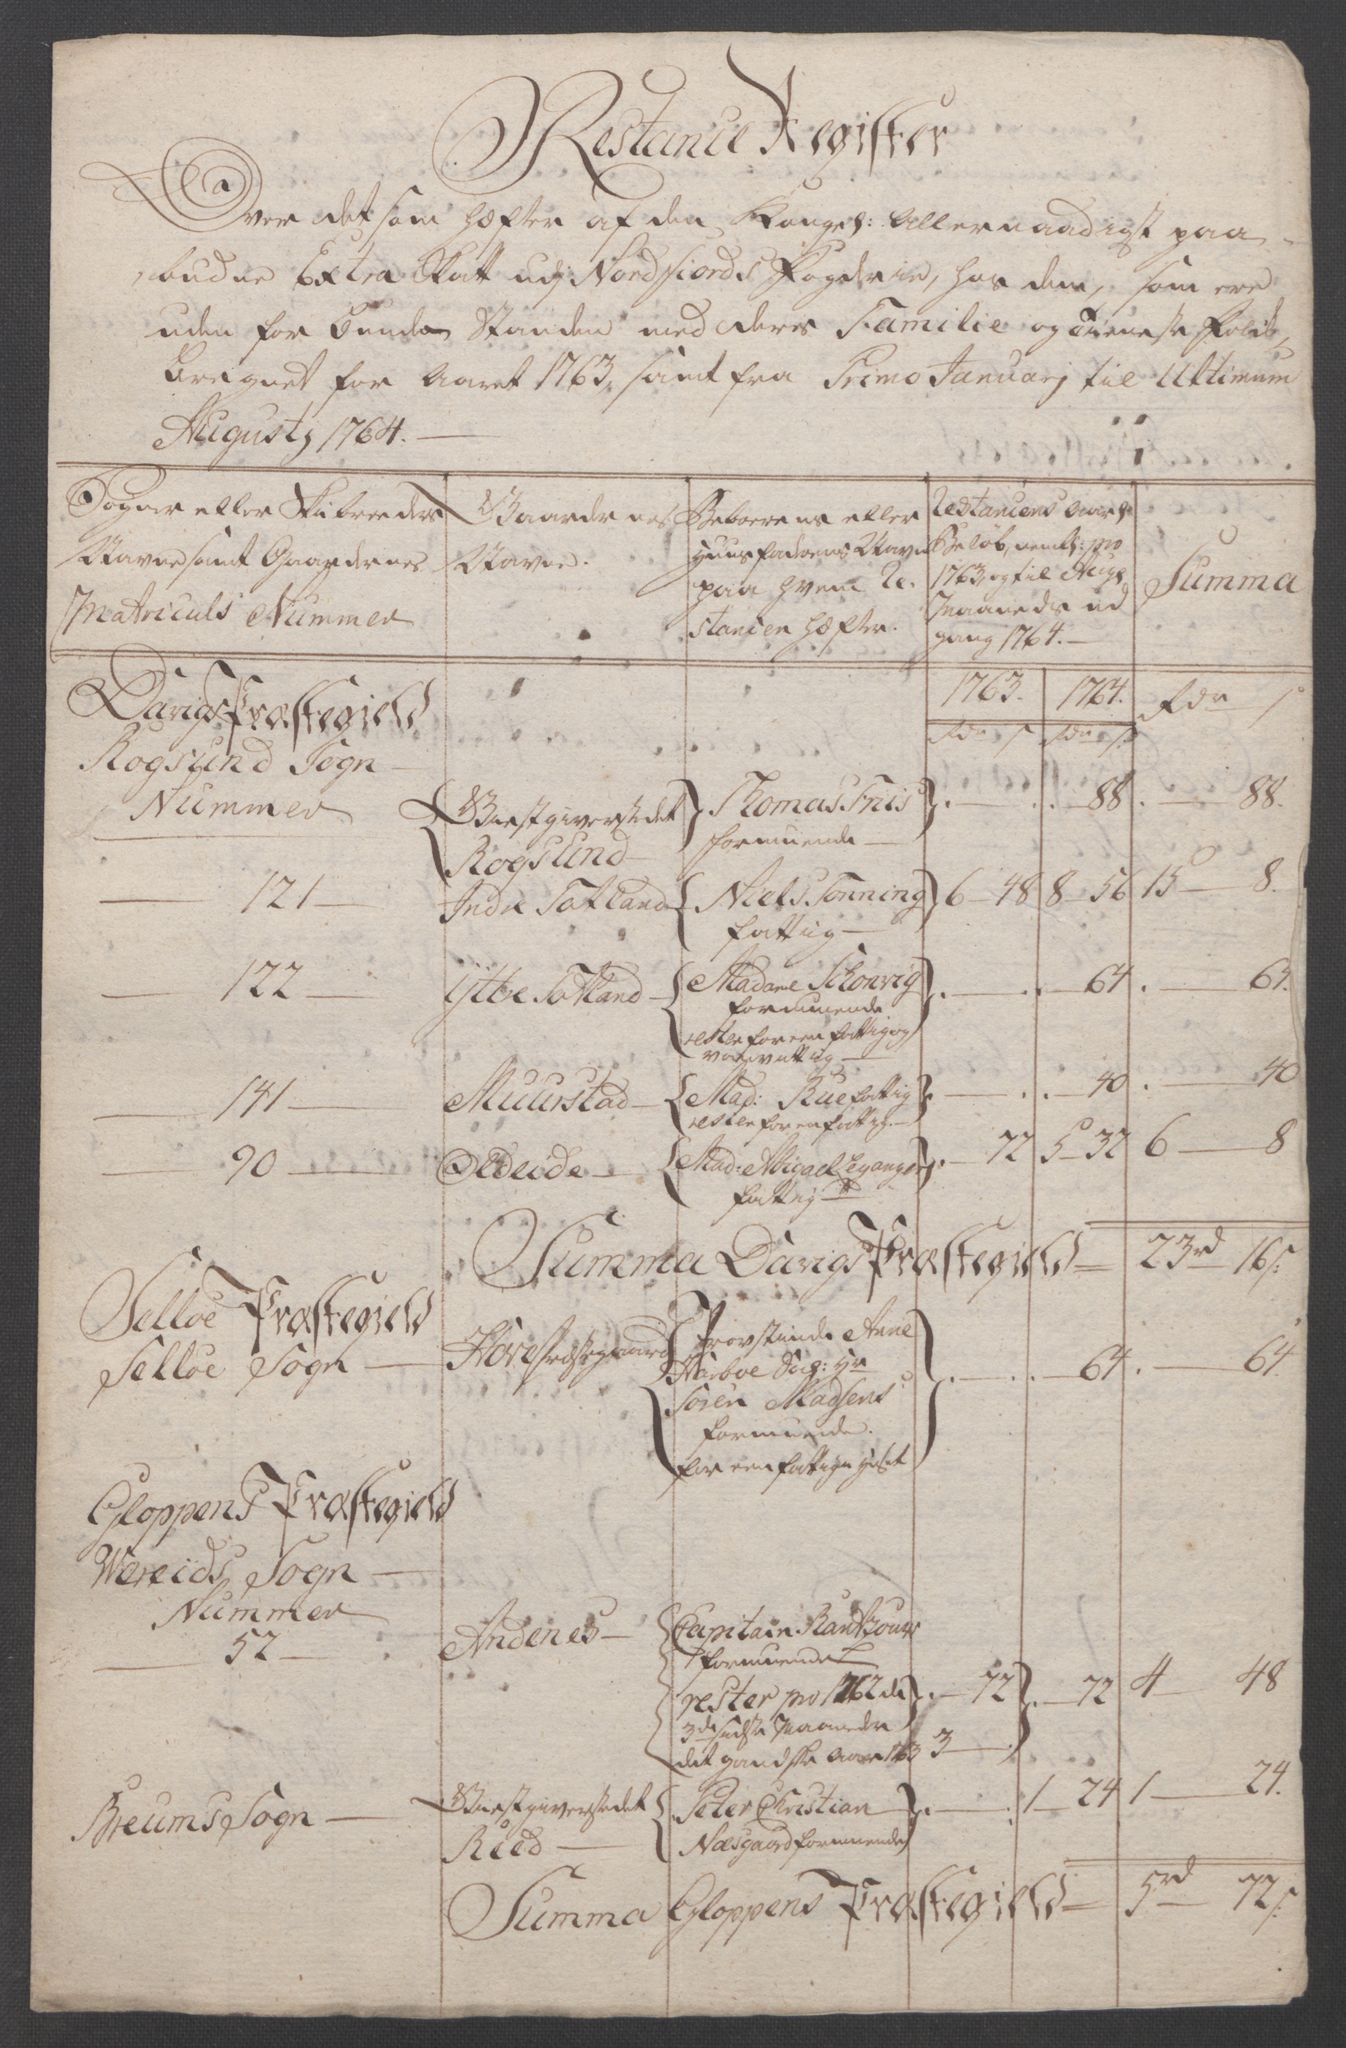 Restance Register
Over det som hæfter af den Kongel: Allernaadigst paa-
budne Extra Skatt udj Nordfiords Fogderie, hos dem, som ere
uden for Bonde Standen med deres Familie og Tieneste Folck,
Beregnet for Aaret 1763, samt fra Primo Januarj til Ultimum
Augustj 1764.
Sogner eller Skibreeders
Navne samt Gaardernes
Matriculs Nummer
Gaardernes
Navne.
Beboerens eller
Huusfaderens Navne
paa hvem Re-
stancen hæfter.
Restancens Aarl:
Beløb, nembl: pro
1763 og til Aug:
Maaneds ud
gang 1764.
Summa
1763. 1764.
rdr s rdr s rdr s
Davigs Præstegield
Rogsund Sogn
Nummer
Giestgiverstedet Rogsund Thomas Friis formuende 88 88.
121 Indre Totland Niels Tønning fattig 6 48 8 56 15 8.
122 Ytre Totland Madame Schonvig formuende
rester for een fattig og
vanvittig 64 64.
141 Muurstad Mad: Rue fattig
rester for en fattig. 40 40
90 Oldeide Mad: Abigael Leganger
fattig 72 5 32 6 8
Summa Davigs Præstegield 23rd 16s:
Selløe Præstegield
Selløe Sogn Hove Provstinde Anne
Garboe Sal: Hr
Sören Madsens
formuende.
for een fattig i Huset 64 64.
Gloppens Præstegield
Wereids Sogn
Nummer
52 Andenes Capitain Rantzow
formuende
rester pro 1762 de 72 72 4 48
3de sidste Maaneder
det gandske Aar 1763 3
Breums Sogn Giestgiverstedet
Reed Peter Christian
Næsgaard formuende 1 24 1 24.
Summa Gloppens Præstegield 5rd 72s: